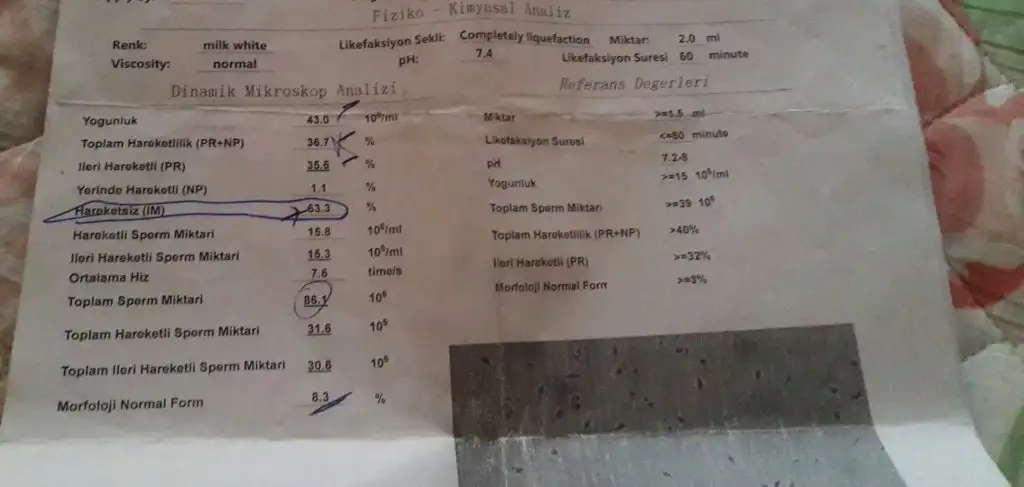 Fiziko - Kimyasal Analiz
Renk: milk white Likefaksiyon Sekli: Completely liquefaction Miktar: 2.0 ml
Viscosity: normal pH: 7.4 Likefaksiyon Suresi 60 minute
Dinamik Mikroskop Analizi
Yogunluk 43.0 10⁶/ml
Toplam Hareketlilik (PR+NP) 36.7 %
Ileri Hareketli (PR) 35.6 %
Yerinde Hareketli (NP) 1.1 %
Hareketsiz (IM) 63.3 %
Hareketli Sperm Miktari 15.8 10⁶/ml
Ileri Hareketli Sperm Miktari 15.3 10⁶/ml
Ortalama Hiz 7.6 time/s
Toplam Sperm Miktari 86.1 10⁶
Toplam Hareketli Sperm Miktari 31.6 10⁶
Toplam Ileri Hareketli Sperm Miktari 30.6 10⁶
Morfoloji Normal Form 8.3 %
Referans Degerleri
Miktar >=1.5 ml
Likefaksiyon Suresi <=60 minute
pH 7.2-8
Yogunluk >=15 10⁶/ml
Toplam Sperm Miktari >=39 10⁶
Toplam Hareketlilik (PR+NP) >40%
Ileri Hareketli (PR) >=32%
Morfoloji Normal Form >=3%